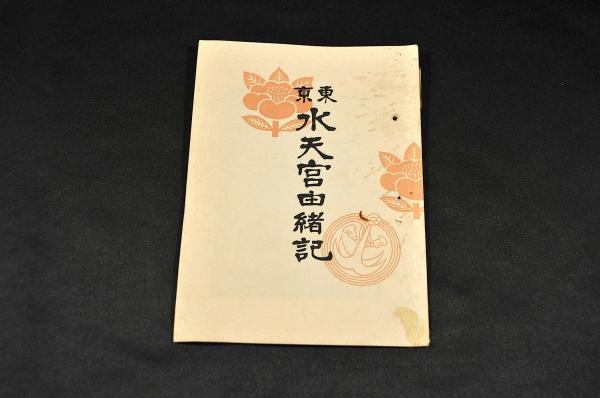 東京
水天宮由緒記